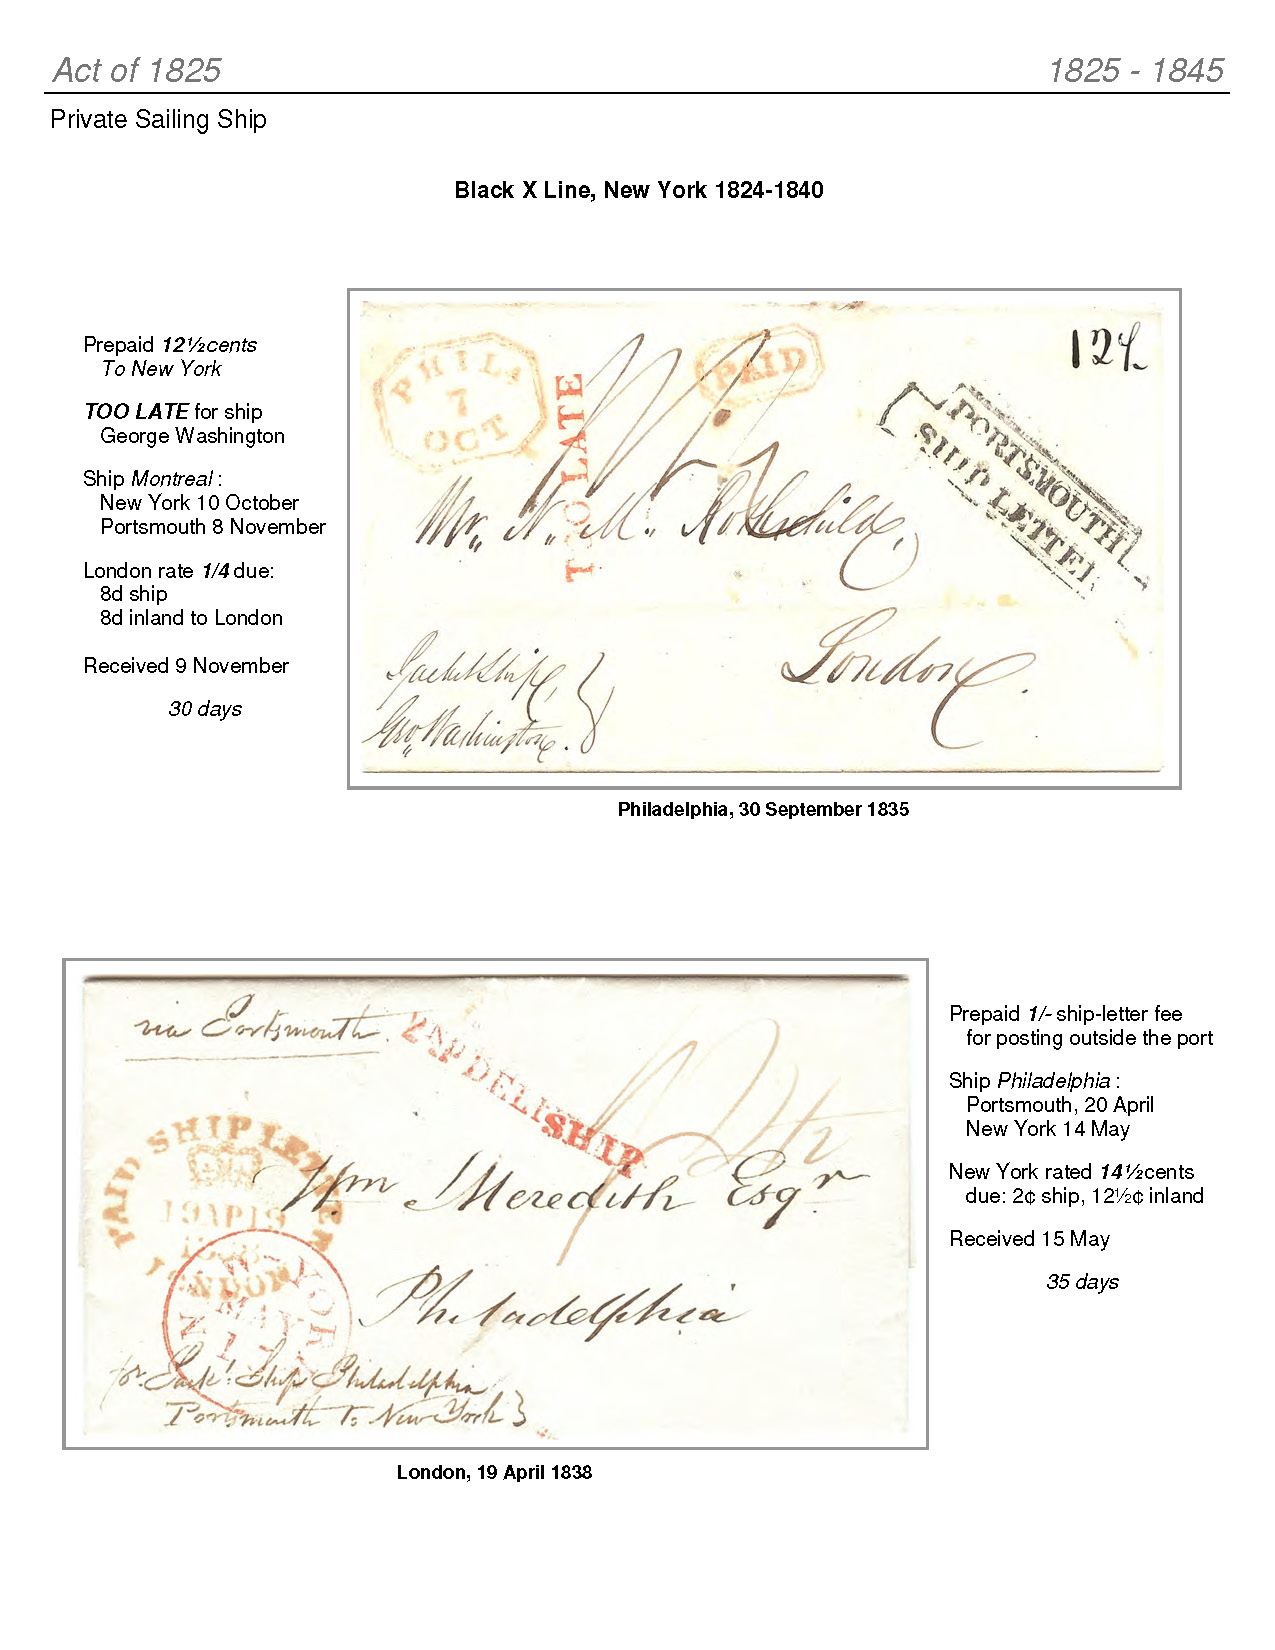 Act of 1825
1825 - 1845
Private Sailing Ship
Black X Line, New York 1824-1840
Prepaid 12½cents
To New York
TOO LATE for ship
George Washington
Ship Montreal :
New York 10 October
Portsmouth 8 November
London rate 1/4 due:
8d ship
8d inland to London
Received 9 November
30 days
PHILA
7
OCT
TOO LATE
PAID
12½
PORTSMOUTH
SHIP LETTER
Mr. N. M. Rothschild,
London.
Packet Ship,
Geo. Washington.
Philadelphia, 30 September 1835
via Portsmouth.
2ND DELIV
SHIP
PAID SHIP LETTER
19 AP 19
1838
LONDON
Wm Meredith Esqr
Philadelphia
NEW YORK
MAY
pr. Packt. Ship Philadelphia
Portsmouth To New York
London, 19 April 1838
Prepaid 1/- ship-letter fee
for posting outside the port
Ship Philadelphia :
Portsmouth, 20 April
New York 14 May
New York rated 14½cents
due: 2¢ ship, 12½¢ inland
Received 15 May
35 days